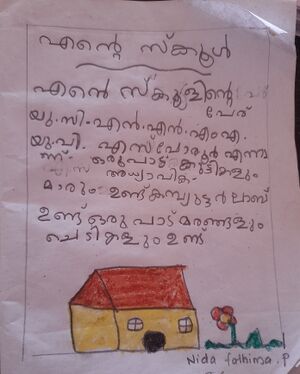 എന്റെ സ്കൂൾ
എന്റെ സ്കൂളിന്റെ
പേര്
യു.സി.എൻ.എൻ.എം.എ.
യു.പി. എസ് പോരൂർ എന്നാ
ണ് ഒരുപാട് കുട്ടികളും
അധ്യാപിക
മാരും ഉണ്ട് കമ്പ്യൂട്ടർ ലാബ്
ഉണ്ട് ഒരു പാട് മരങ്ങളും
ചെടികളും ഉണ്ട്
Nida fathima.P